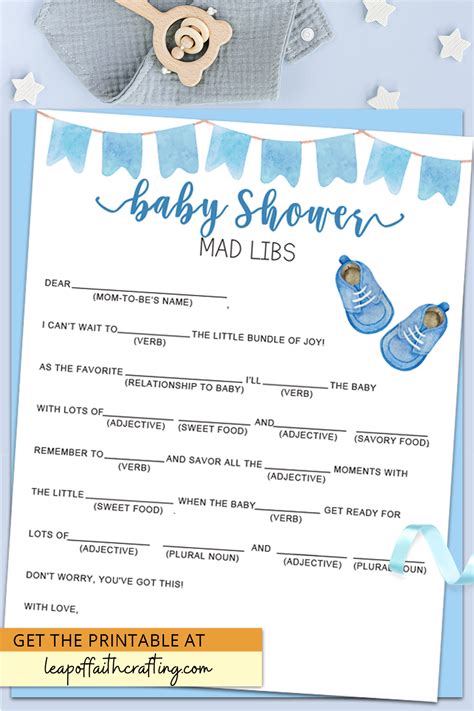 baby Shower
MAD LIBS
DEAR
(MOM-TO-BE'S NAME)
I CAN'T WAIT TO THE LITTLE BUNDLE OF JOY!
(VERB)
AS THE FAVORITE I'LL THE BABY
(RELATIONSHIP TO BABY) (VERB)
WITH LOTS OF AND
(ADJECTIVE) (SWEET FOOD) (ADJECTIVE) (SAVORY FOOD)
REMEMBER TO AND SAVOR ALL THE MOMENTS WITH
(VERB) (ADJECTIVE)
THE LITTLE . WHEN THE BABY GET READY FOR
(SWEET FOOD) (VERB)
LOTS OF AND
(ADJECTIVE) (PLURAL NOUN) (ADJECTIVE) (PLURAL NOUN)
DON'T WORRY, YOU'VE GOT THIS!
WITH LOVE,
GET THE PRINTABLE AT
leapoffaithcrafting.com